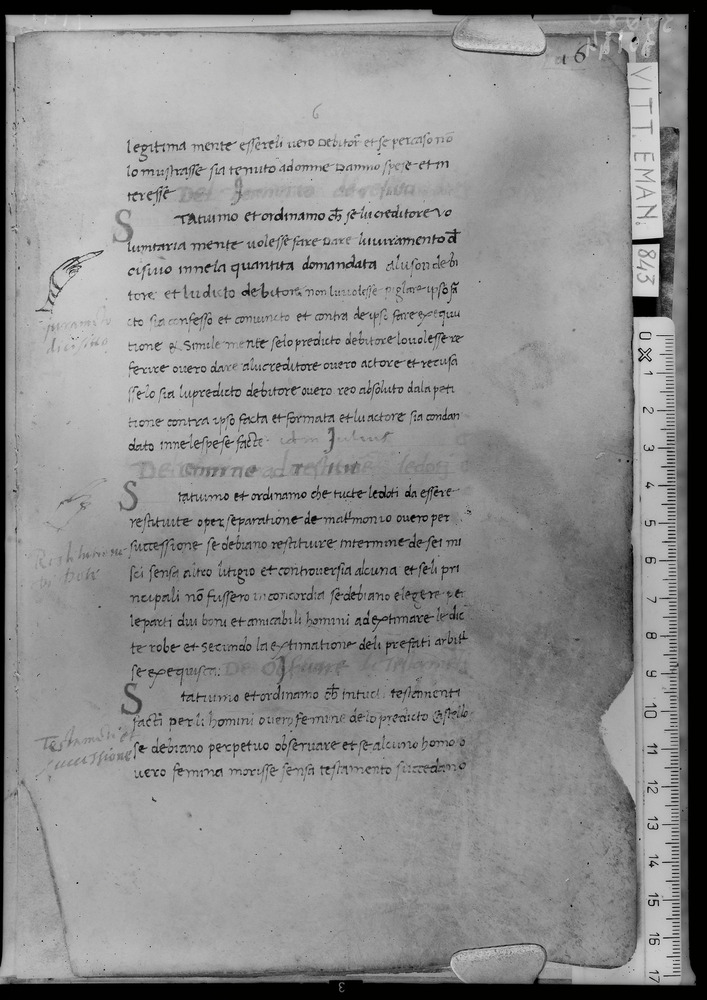 6
legitima mente essereli vero debitor et se per caso nō
lo mustrasse sia tenuto ad omne damno spese et in
teresse
Statuimo et ordinamo ch̄ se lu creditore vo
luntaria mente volesse fare dare lu iuramento d
cisiuo innela quantita domandata alu son debi
tore et lu dicto debitore non lu volesse piglare ipso fa
cto sia confesso et convincto et contra de ipso fare exequu
tione & Simele mente se lo predicto debitore lo volesse re
ferire overo dare alu creditore overo actore et recusa
sselo sia lu predicto debitore overo reo absoluto dala peti
tione contra ipso facta et formata et lu actore sia condan
dato innele spese facte
De termine ad le doti
Statuimo et ordinamo che tucte le doti da essere
restituite o per separatione de matrimonio overo per
successione se debiano restituire in termine de sei mi
sci sensa altro litigio et controversia alcuna et se li pri
ncipali nō fussero in concordia se debiano elegere per
le parti dui boni et amicabili homini ad extimare le dic
te robe et secundo la extimatione deli prefati arbitr
se exequisca:
Statuimo et ordinamo ch̄ tutti testamenti
facti per li homini overo femine delo predicto Castello
se debiano perpetuo observare et se alcuno homo o
vero femina morisse sensa testamento succedano
Testamenti et
successione
VITT. EMAN.
843
0 1 2 3 4 5 6 7 8 9 10 11 12 13 14 15 16 17
3